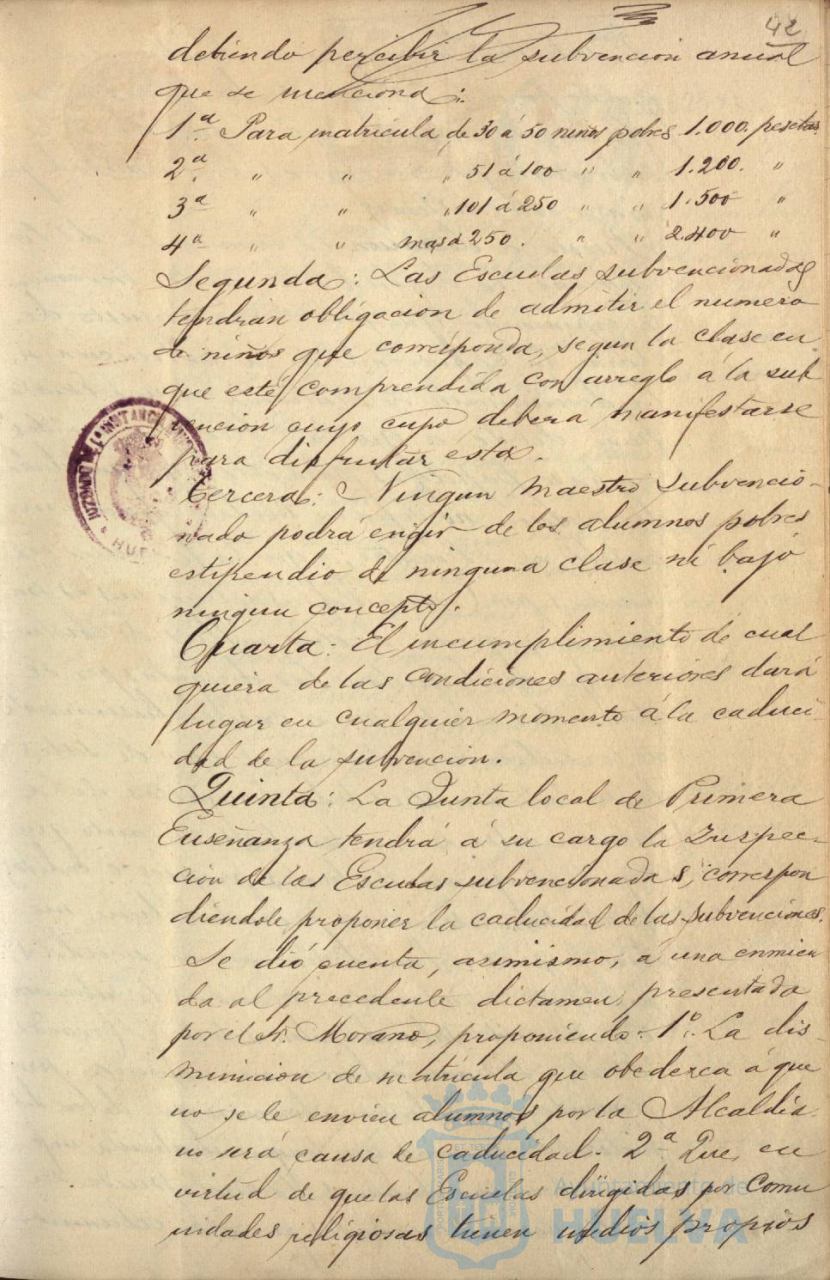 42
debiendo percibir la subvencion anual
que se menciona:
1ª Para matricula de 30 á 50 niños pobres 1.000. pesetas.
2ª " " " 51 á 100 " " 1.200. "
3ª " " " 101 á 250 " " 1.500 "
4ª " " mas d 250. " " 2.400 "
Segunda: Las Escuelas subvencionadas
tendrán obligacion de admitir el numero
de niños que corresponda, segun la clase en
que esté comprendida con arreglo á la sub
vencion cuyo cupo deberá manifestarse
para disfrutar esta.
Tercera: Ningun maestro subvencio-
nado podrá exigir de los alumnos pobres
estipendio de ninguna clase ni bajo
ningun concepto.
Cuarta: El incumplimiento de cual
quiera de las condiciones anteriores dará
lugar en cualquier momento á la caduci-
dad de la subvencion.
Quinta: La Junta local de Primera
Enseñanza tendrá á su cargo la Inspec-
ción de las Escuelas subvencionadas, correspon
diendole proponer la caducidad de las subvenciones.
Se dió cuenta, asimismo, á una enmien
da al precedente dictamen presentada
por el Sr. Morano, proponiendo. 1º. La dis-
minucion de matrícula que obedezca á que
no se le envien alumnos por la Alcaldia.
no será causa de caducidad. 2ª Que, en
virtud de que las Escuelas dirigidas por Comu
nidades religiosas tienen medios propios
JUZGADO DE 1ª INSTANCIA
HUE
Ayuntamiento de
HUELVA